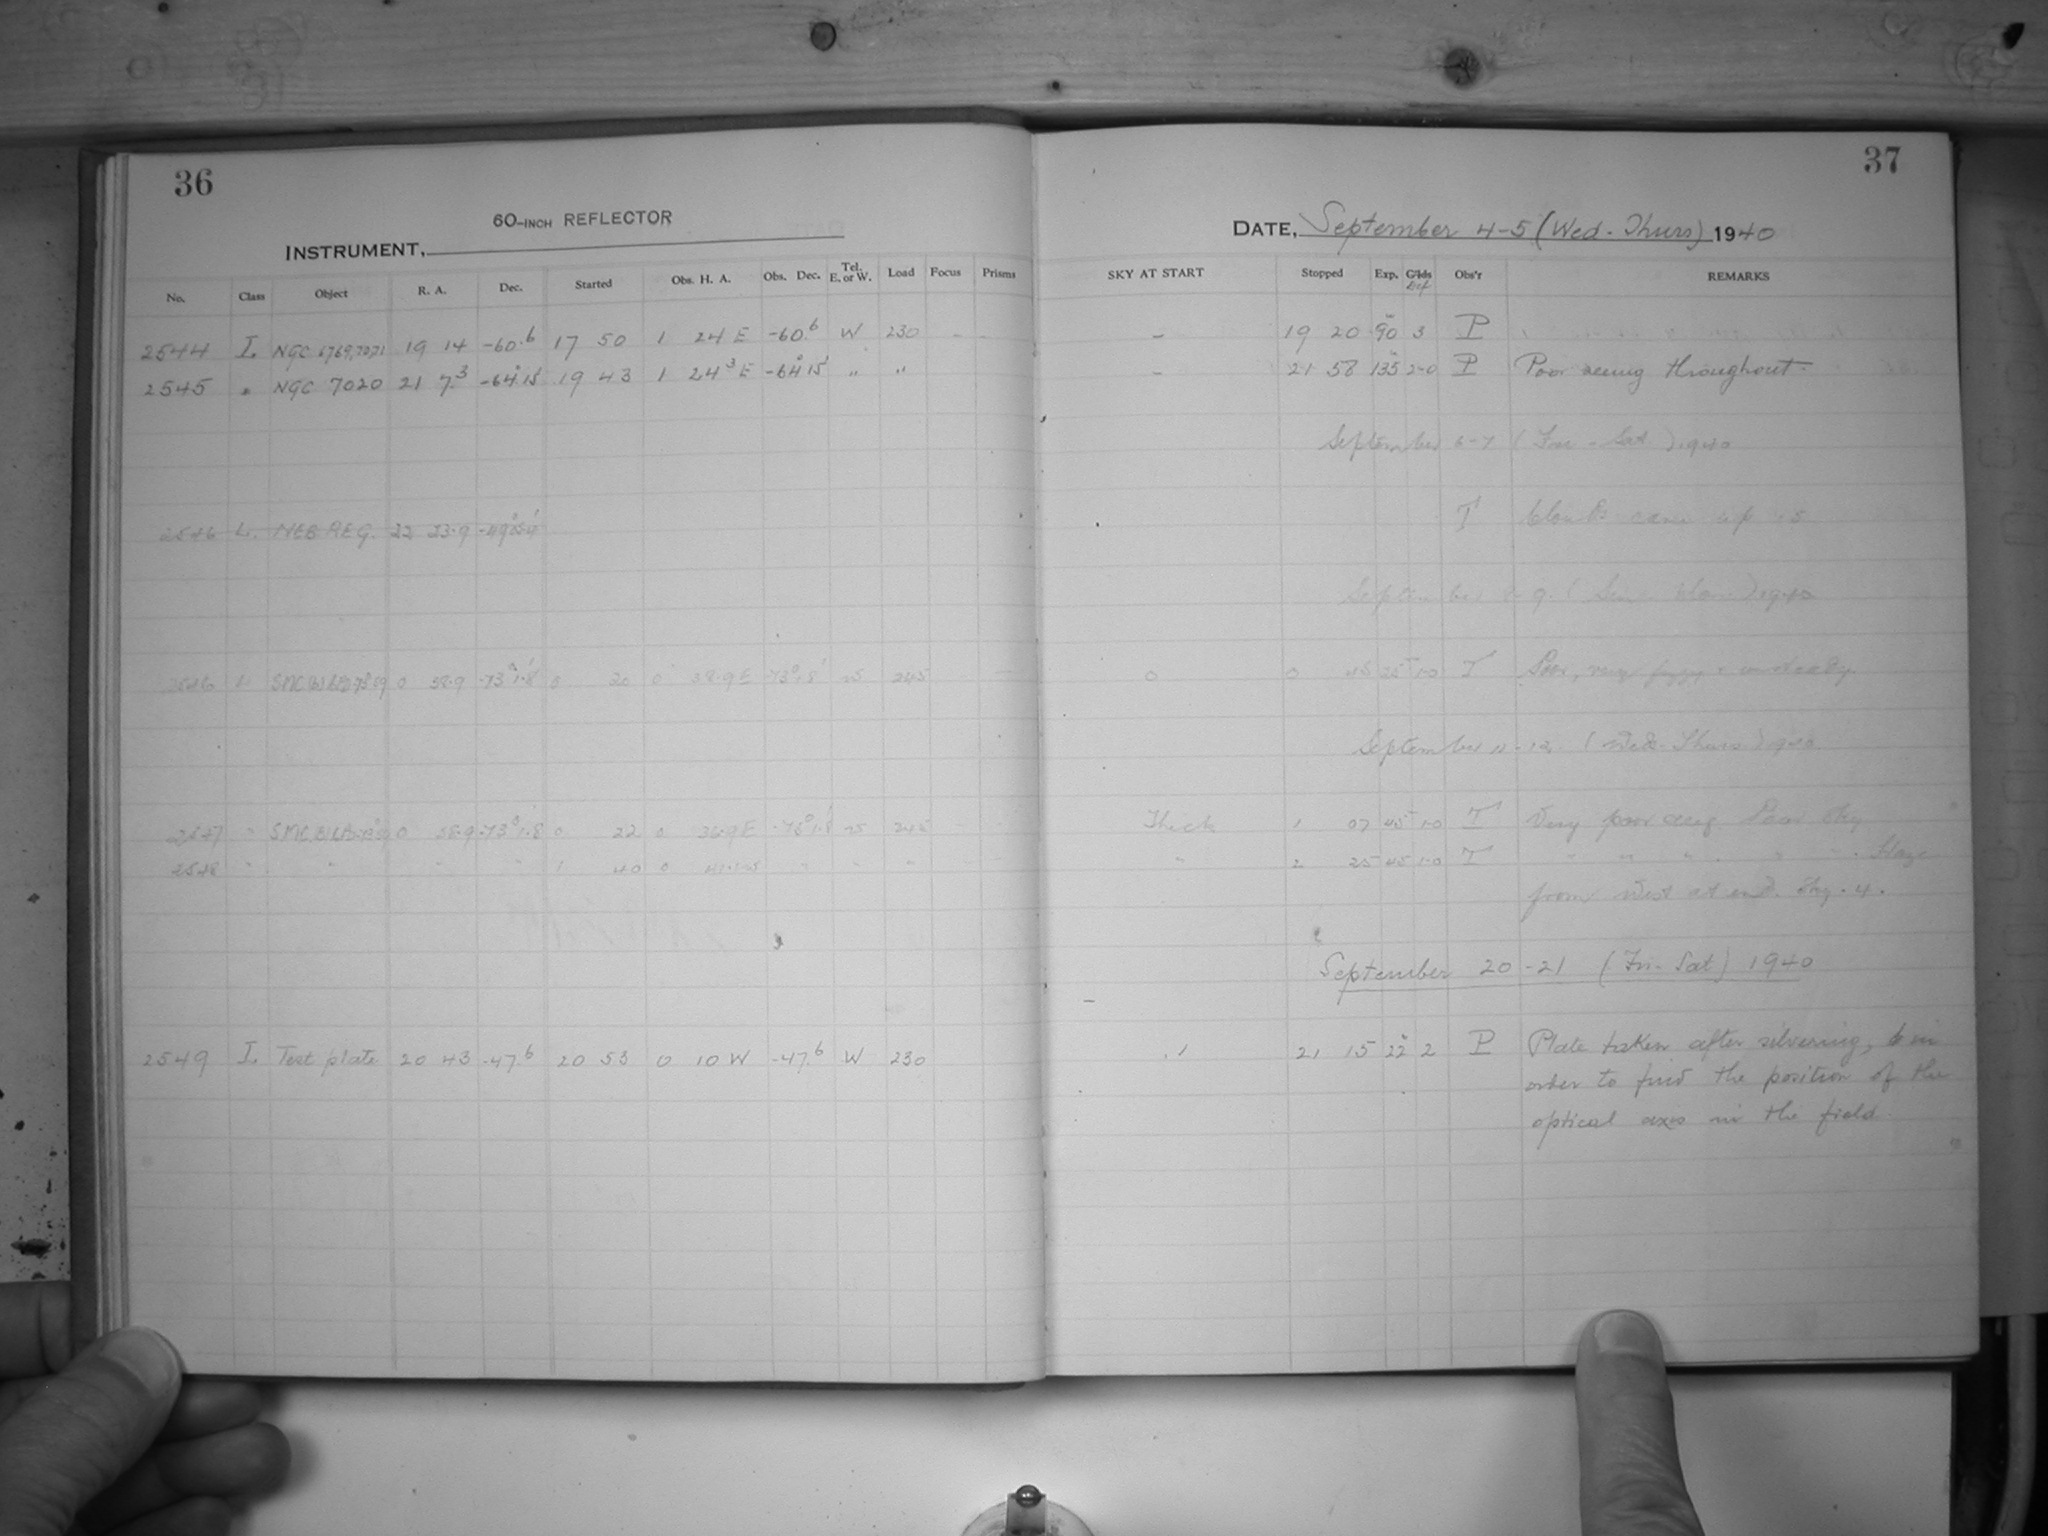 36
60-INCH REFLECTOR
INSTRUMENT,
No. Class Object R. A. Dec. Started Obs. H. A. Obs. Dec. Tel. E. or W. Load Focus Prisms
2544 I. NGC 6769,70,71 19 14 -60.6 17 50 1 24 E -60.6 W 230 - -
2545 " NGC 7020 21 7.3 -64°15' 19 43 1 24.3 E -64°15' " "
2546 L. NEB REG. 22 23.9
2546 0 58.9 -73°1.8' 0 20 0 38.9 E -73°1.8' 245
2547 " 0 58.9 -73°1.8' 0 22 0 36.9 E -73°1.8' 245
2548 " " " " 1 40 0
2549 I. Test plate 20 43 -47.6 20 53 0 10 W -47.6 W 230
37
DATE, September 4-5 (Wed-Thurs) 1940
SKY AT START Stopped Exp. Obs'r REMARKS
- 19 20 90 3 P
- 21 58 135 2-0 P Poor seeing throughout.
September 6-7 (Fri - Sat) 1940
T Clouds came up
September 8-9 (Sun - Mon) 1940
0 0 45 25 1-0 T Poor, very fuzzy & unsteady.
September 11-12 (Wed-Thurs) 1940
Thick 1 07 45 1-0 T Very poor Poor sky
" 2 25 45 1-0 T " " " " " Haze
from West at end. Sky. 4.
September 20-21 (Fri-Sat) 1940
21 15 22 2 P Plate taken after silvering, in
order to find the position of the
optical axis in the field